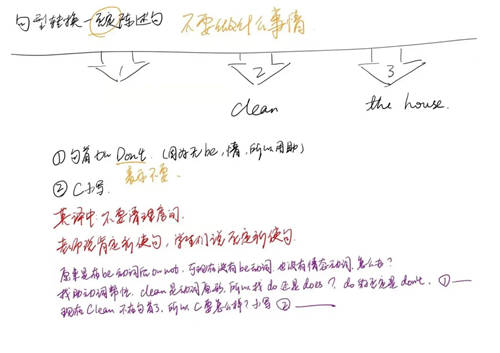 句型转换-否定陈述句 不要做什么事情
1 2 3
clean the house.
①句首加 Don't. (因为无be,情,所以用助)
表示不要.
②C小写.
英译中:不要清理房间.
老师说肯定祈使句,学生们说否定祈使句.
原来是在be动词后加not.可现在没有be动词,也没有情态动词,怎么办?
找助动词帮忙. clean是动词原形,所以找do还是does? do的否定是don't. ①——
现在Clean不在句首了,所以C要怎么样?小写 ②——